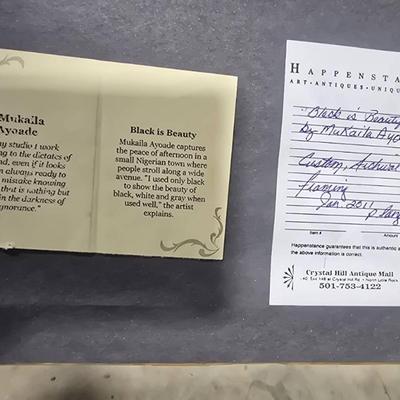 Mukaila
Ayoade
studio I work
to the dictates of
nd, even if it looks
always ready to
mistake knowing
that is nothing but
in the darkness of
ignorance."
Black is Beauty
Mukaila Ayoade captures
the peace of afternoon in a
small Nigerian town where
people stroll along a wide
avenue. "I used only black
to show the beauty of
black, white and gray when
used well," the artist
explains.
HAPPENSTA
ART · ANTIQUES · UNIQU
"Black is Beauty
by Mukaila Ayo
Custom, Archival
framing
Jan. 2011
Item #
Amount
Happenstance guarantees that this is authentic a
the above information is correct.
Crystal Hill Antique Mall
Crystal Hill Rd
North Little Rock
501-753-4122